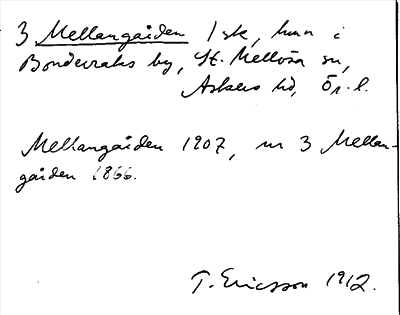 3 Mellangården 1 sk, hmn i
Bondevrahs by, St. Mellösa sn,
Askers hd, Ör. l.
Mellangården 1907, nr 3 Mellan-
gården 1866.
T. Ericsson 1912.